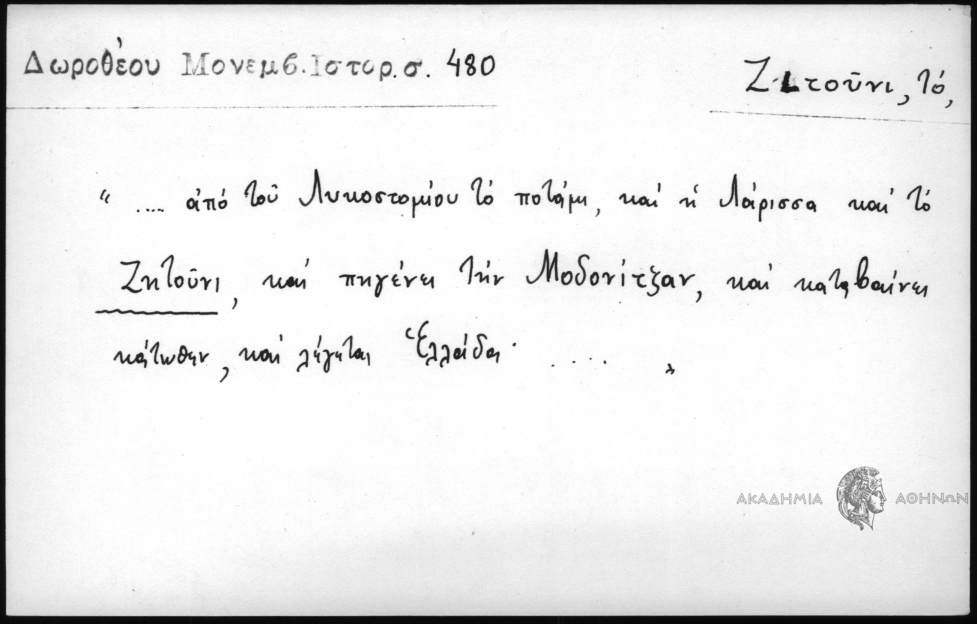 Δωροθέου Μονεμβ. Ιστορ. σ. 480
Ζιτοῦνι, τό,
“ .... ἀπό τοῦ Λυκοστομίου τό ποτάμι, καί ἡ Λάρισσα καί τό
Ζητοῦνι, καί πηγένει τήν Μοδονίτζαν, καί καταβαίνει
κάτωθεν, καί λέγεται Ἑλλάδα· .... „
ΑΚΑΔΗΜΙΑ ΑΘΗΝΩΝ